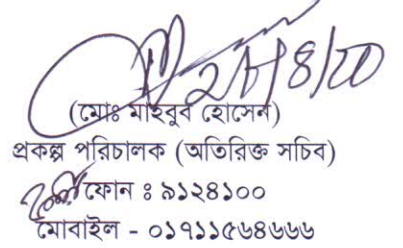 (মোঃ মাহবুব হোসেন)
প্রকল্প পরিচালক (অতিরিক্ত সচিব)
ফোন ঃ ৯১২৪১০০
মোবাইল - ০১৭১১৫৬৪৬৬৬